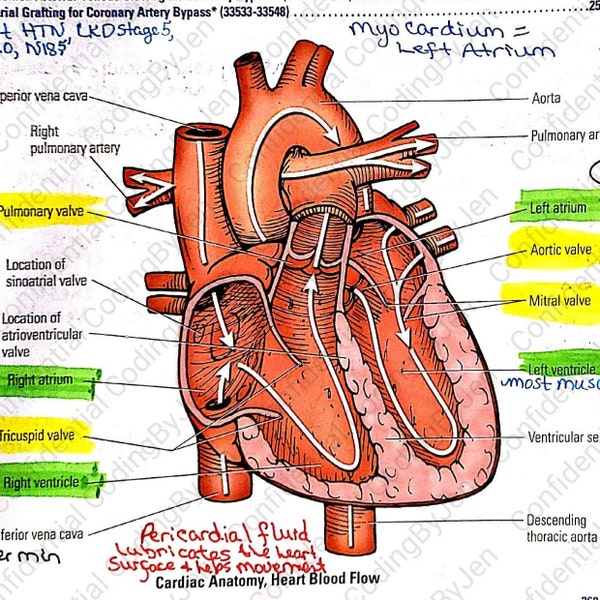 rial Grafting for Coronary Artery Bypass* (33533-33548)
t HTN, CKD stage 5,
.0, N185
Myocardium =
Left Atrium
perior vena cava
Aorta
Right
pulmonary artery
Pulmonary ar
Pulmonary valve
Left atrium
Aortic valve
Location of
sinoatrial valve
Mitral valve
Location of
atrioventricular
valve
Left ventricle
most musc
Right atrium
Tricuspid valve
Ventricular se
Right ventricle
nferior vena cava
Descending
thoracic aorta
er min
Pericardial fluid
lubricates the heart
surface + helps movement
Cardiac Anatomy, Heart Blood Flow
Confidential CodingByJen